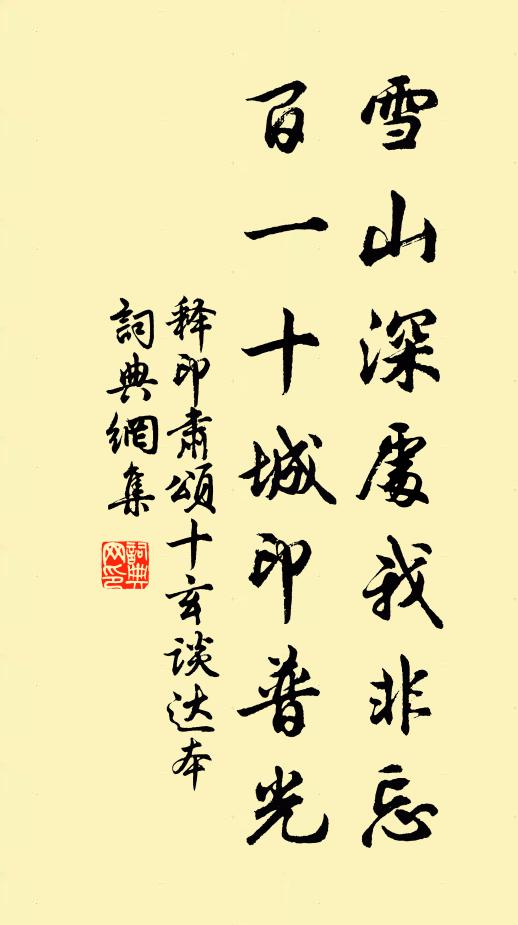 雪山深處我非忘
百一十城印普光
释印肃頌十玄谈达本
詞典網集
詞典网印